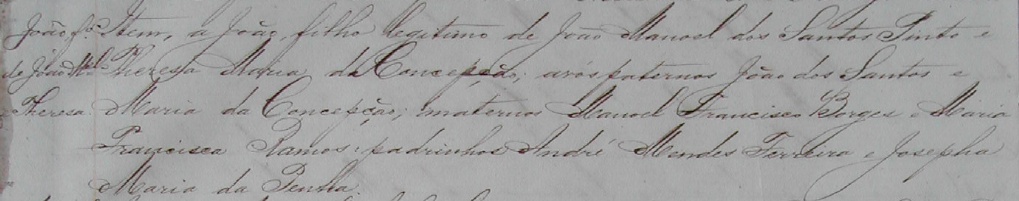 João fo Item, a João, filho legitimo de João Manoel dos Santos Pinto e
de João Ml. Theresa Maria da Concepção; avós paternos João dos Santos e
Theresa Maria da Concepção; maternos Manoel Francisco Borges e Maria
Francisca Ramos: padrinhos André Mendes Ferreira e Josepha
Maria da Penha.